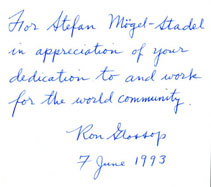 For Stefan Mögel-Stadel
in appreciation of your
dedication to and work
for the world community.
Ron Glossop
7 June 1993